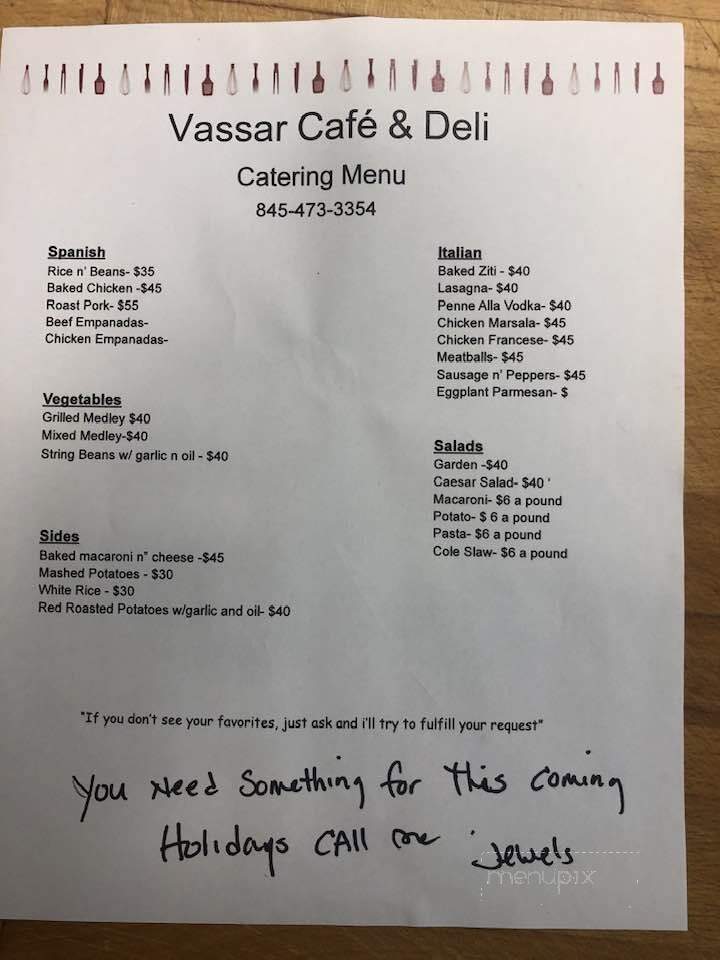 Vassar Café & Deli
Catering Menu
845-473-3354
Spanish
Rice n' Beans- $35
Baked Chicken -$45
Roast Pork- $55
Beef Empanadas-
Chicken Empanadas-
Vegetables
Grilled Medley $40
Mixed Medley-$40
String Beans w/ garlic n oil - $40
Sides
Baked macaroni n" cheese -$45
Mashed Potatoes - $30
White Rice - $30
Red Roasted Potatoes w/garlic and oil- $40
Italian
Baked Ziti - $40
Lasagna- $40
Penne Alla Vodka- $40
Chicken Marsala- $45
Chicken Francese- $45
Meatballs- $45
Sausage n' Peppers- $45
Eggplant Parmesan- $
Salads
Garden -$40
Caesar Salad- $40 '
Macaroni- $6 a pound
Potato- $ 6 a pound
Pasta- $6 a pound
Cole Slaw- $6 a pound
"If you don't see your favorites, just ask and i'll try to fulfill your request"
You Need Something for This Coming
Holidays CAll me Jewels
menupix